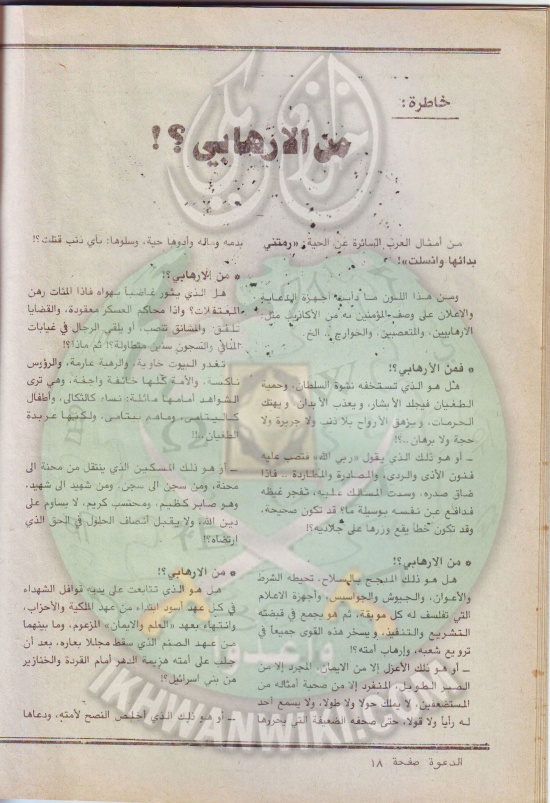 خاطرة :
من الارهابي ؟ !
من أمثال العرب السائرة عن الحية، «رمتني
بدائها وانسلت»!
ومن هذا اللون ما دأبت أجهزة الدعاية
والاعلان على وصف المؤمنين به من الأكاذيب مثل:
الارهابيين، والمتعصبين، والخوارج .. الخ.
* فمن الأرهابي؟!
هل هو الذي تستخفه نشوة السلطان، وحمية
الطغيان فيجلد الأبشار، ويعذب الأبدان، ويهتك
الحرمات، ويزهق الأرواح بلا ذنب ولا جريرة ولا
حجة ولا برهان ..؟!
ــ أو هو ذلك الذي يقول «ربي الله» فتصب عليه
فنون الأذى والردى، والمصادرة والمطاردة .. فاذا
ضاق صدره، وسدت المسالك عليه، تفجر غيظه
فدافع عن نفسه بوسيلة ما؟ قد تكون صحيحة،
وقد تكون خطأ يقع وزرها على جلاديه؟!
* من الارهابي؟!
هل هو ذلك المدجج بالسلاح، تحيطه الشرط
والأعوان، والجيوش والجواسيس، وأجهزة الاعلام
التي تفلسف له كل موبقة، ثم هو يجمع في قبضته
التشريع والتنفيذ، ويسخر هذه القوى جميعاً في
ترويع شعبه، وإرهاب أمته؟!
ــ أو هو ذلك الأعزل إلا من الايمان، المجرد إلا من
الصبر الطويل، المنفرد إلا من صحبة أمثاله من
المستضعفين، لا يملك حولا ولا طولا، ولا يسمع أحد
له رأياً ولا قولا، حتى صحفه الضعيفة التي يحررها
بدمه وماله وأدوها حية، وسلوها: بأي ذنب قتلت؟!
* من الارهابي؟!
هل الذي يثور غاضباً بهواه فاذا المئات رهن
المعتقلات؟ واذا محاكم العسكر معقودة، والقضايا
تلفق، والمشانق تنصب، أو يلقي الرجال في غيابات
المنافي والسجون سنين متطاولة؟! ثم ماذا؟!
تغدو البيوت خاوية، والرهبة عارمة، والرؤوس
ناكسة، والأمة كلها خائفة واجفة، وهي ترى
الشواهد أمامها ماثلة: نساء كالثكالى، وأطفال
كاليتامى، وماهم بيتامى، ولكنها عربدة
الطغيان ..!!
ــ أو هو ذلك المسكين الذي ينتقل من محنة الى
محنة، ومن سجن الى سجن، ومن شهيد الى شهيد،
وهو صابر كظيم، ومحتسب كريم، لا يساوم على
دين الله، ولا يقبل أنصاف الحلول في الحق الذي
ارتضاه؟!
* من الارهابي؟!
هل هو الذي تتابعت على يديه قوافل الشهداء
في كل عهد أسود ابتداء من عهد الملكية والأحزاب،
وانتهاء بعهد «العلم والايمان» المزعوم، وما بينهما
من عهد الصنم الذي سقط مجللا بعاره، بعد أن
جلب على أمته هزيمة الدهر أمام القردة والخنازير
من بني اسرائيل؟!
ــ أو هو ذلك الذي أخلص النصح لأمته، ودعاها
الدعوة صفحة ١٨
واعدوا
IKHWANWIKI.COM